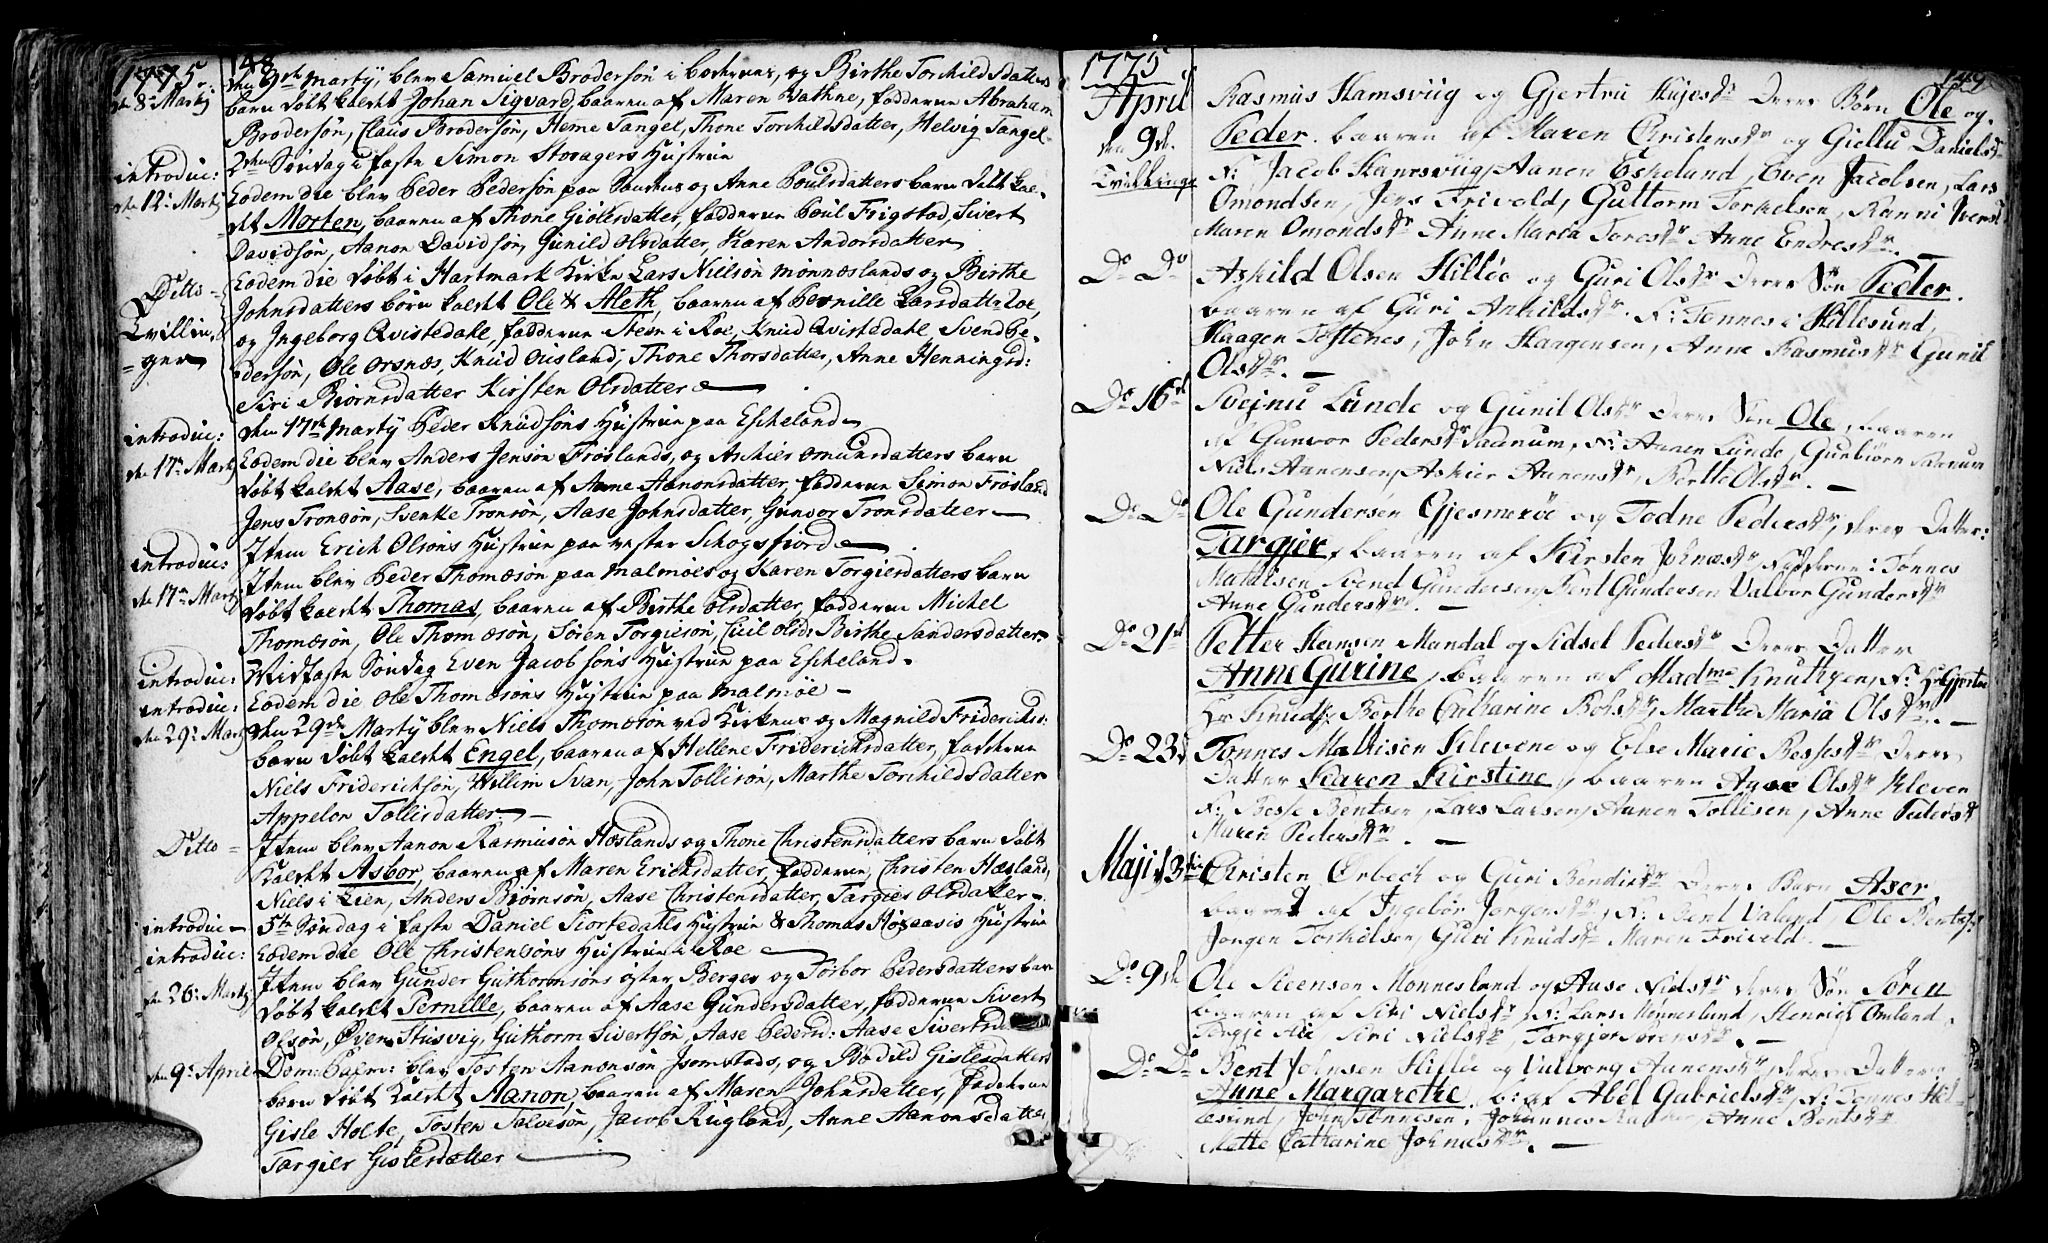 1775.
148
d. 8: Martj
Den 9de Martij, blev Samuel Brodersøn i , og Birthe Torchildsdatters
barn døbt kaldet Johan Sigvard, baaren af Maren Vathne, fadderne Abraham
Brodersøn, Claus Brodersøn, Herne Tangel, Thone Torchildsdatter, Helvig Tangel
introduc:
2den Søndag i faste Simon Storagers Hustrue
d. 12: Martj
Eodem die blev Peder Pedersøn paa og Anne Poulsdatters barn døbt kal-
det Morten, baaren af Thone Gislesdatter, fadderne Poul Frigstad, Sivert
Davidsøn, Aanon Davidsøn, Gunild Olsdatter, Karen Andorsdatter
Ditto
Eodem die døbt i Hartmark Kirke Lars Nielsøn Mønnæslands og Birthe
Tvillin-
Johnsdatters børn kaldet Ole & Aleth, baaren af Pernille Larsdatter Roe,
ger
og Ingeborg Qvistedahl, fadderne Steen i Roe, Knud Qvistedahl, Svend Pe-
dersøn, Ole Orsnæs, Knud Ouisland, Thone Thorsdatter, Anne Henningsd:
Siri Biørnsdatter Kirsten Olsdatter
introduc:
den 17de Martij Peder Knudsøns Hustrue paa Eskeland
d. 17: Martj
Eodem die blev Anders Jensøn Frøslands, og Anchier Omundsdatters barn
døbt kaldet Aase, baaren af Anne Aanonsdatter, fadderne Simon Frøsland
Jens Tronsøn, Svenke Tronsøn, Aase Johnsdatter, Gunvor Tronsdatter
introduc:
Item Erich Olsøns Hustrue paa Vester Schogsfiord
d. 17de Martj
Item blev Peder Thomæsøn paa Malmøes og Karen Torgiersdatters barn
døbt kaldet Thomas, baaren af Birthe Olsdatter, fadderne Michel
Thomæsøn, Ole Thomæsøn, Søren Torgiesøn, Cicil Olsd: Birthe Sandersdatter
introduc:
Midfaste Søndag Even Jacobsøns Hustrue paa Escheland
introduc:
Eodem die Ole Thomæsøns Hustrue paa Malmøe
d. 29: Martj
den 29de Martij blev Niels Thomæsøn ved Kirkens og Magnild Fridericks:
barn døbt kaldet Engel, baaren af Hellene Fridericksdatter, fadderne
Niels Fridericksøn, Willim Ivan, John Tollisøn, Marthe Torchildsdatter
Appelon Tollisdatter
Ditto
Item blev Aanon Rasmusøn Hæslands og Thone Christensdatters barn døbt
kaldet Asbor, baaren af Maren Ericksdatter, fadderne, Christen Hæsland,
Niels i Lien, Anders Biørnsøn, Aase Christensdatter, Targier Olsdatter
introduc
5te Søndag i faste Daniel Stortedahls Hustrue & Thomas Hustrue
introduc:
Eodem die Ole Christensøns Hustrue i Roe
d. 26: Martj
Item blev Gunder Guthormsøns øster Berge og Torbor Pedersdatters barn
døbt kaldet Pernille, baaren af Aase Gundersdatter, fadderne Sivert
Olsøn, Øven Stusvig, Guthorm Sivertsøn, Aase Pedersd: Aase Sivertsd
d. 9: April
Dom: Palm: blev Tosten Aanonsøn Isomstads, og Bodild Gislesdatters
barn døbt kaldet Aanon, baaren af Maren Johnsdatter, fadderne
Gisle Holte, Tosten Salvesøn, Jacob Rugland, Anne Aanonsdatter
Targier Gislesdatter
1775
149
April
Rasmus Hamsviig og Gjertru Deres Børn Ole og
den 9de
Peder. baaren af Maren Christensdr og Giellu Danielsdr
Tvillinge
F: Jacob Hamsviig, Aanen Eskeland, Even Jacobsen, Lars
Omondsen, Jens Frivold, Guttorm Torkelsen, Ranni Iversd
Maren Omondsdr Anne Maria Toresdr Anne Endresdr.
Do Do
Askild Olsen Hilløe og Guri Olsdr Deres Søn Peder.
baaren af Guri Askildsdr. F: Tønnes i Hillesund,
Haagen Tostenes, John Haagensen, Anne Rasmusdr Gunil
Olsdr.
Do 16de
Svejnu Lunde og Gunil Olsdr Deres Søn Ole, baaren
af Gunvor Pedersdr Saanum, F: Aanen Lunde, Gunbiørn Saanum
Niels Aanensen, Askier Aanensdr, Berthe Olsdr.
Do Do
Ole Gundersen Gjesmerøe og Todne Pedersdr, deres Datter:
Targjer, baaren af Kirsten Johnsdr, Fadderne: Tønnes
Mathisen Svend Gundersen, Bent Gundersen Valbor Gundersdr
Anne Gundersdr.
Do 21de
Petter Hansen Mandal og Sidsel Pedersdr Deres Datter
Anne Gurine, baaren af Madme Knutzen, F: Hr Gjertsen
Hr Knudsz: Berthe Catharine , Marthe Maria Olsdr.
Do 23d
Tønnes Mathisen Klevene og Else Marie Bessesdr Deres
Datter Karen Kirstine, baaren Aase Olsdr Kleven
F: Besse Bentsen, Lars Larsen, Aanen Tollisen, Anne Pedersd
Maren Pedersdr.
Maji d 3die
Christen Ørbech og Guri Bendixdr Deres Barn Aser
baaret af Ingebor Jørgensdr, F: Bent Valand, Ole Bentsz:
Jørgen Torkilsen Guri Knudsdr Maren Frivold.
Do 9de
Ole Steensen Monnesland og Aase Nielsdr deres Søn Søren
baaren af Siri Nielsdr, F: Lars Monnesland, Henrich Omland,
Torgie , Siri Nielsdr, Targjer Sørensdr.
Do Do
Bent Johnsen Hilløe og Valborg Aanensdr, deres Datter
Anne Margarethe, b: af Abel Gabrielsdr, F: Tønnes Hil-
lesund, John Tønnesen, Johannes , Anne Bentsdr
Mette Catharine Johnsdr.